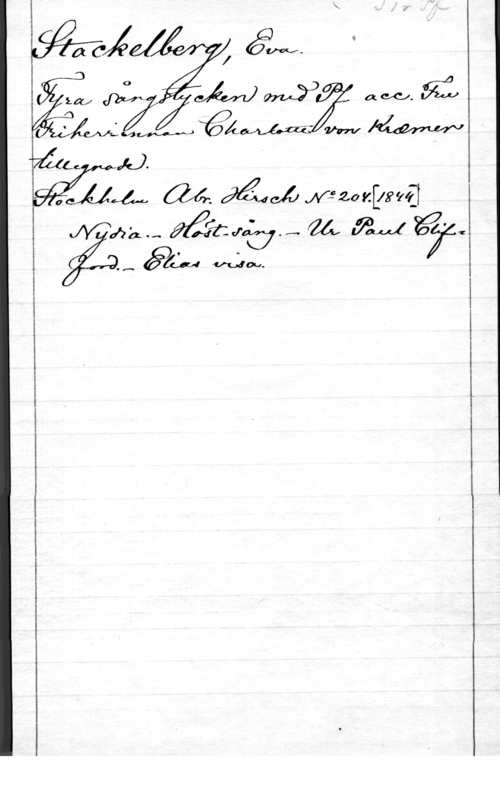 Stackelberg, Eva.
Fyra sångstycken med Pf acc. Fru
Friherrinnan Charlotte von Kræmer
tillegnade.
Stockholm Abr. Hirsch № 204. [1844]
Nydia. - Höst-sång. - Ur Paul Clif-
ford. - Elias visa.